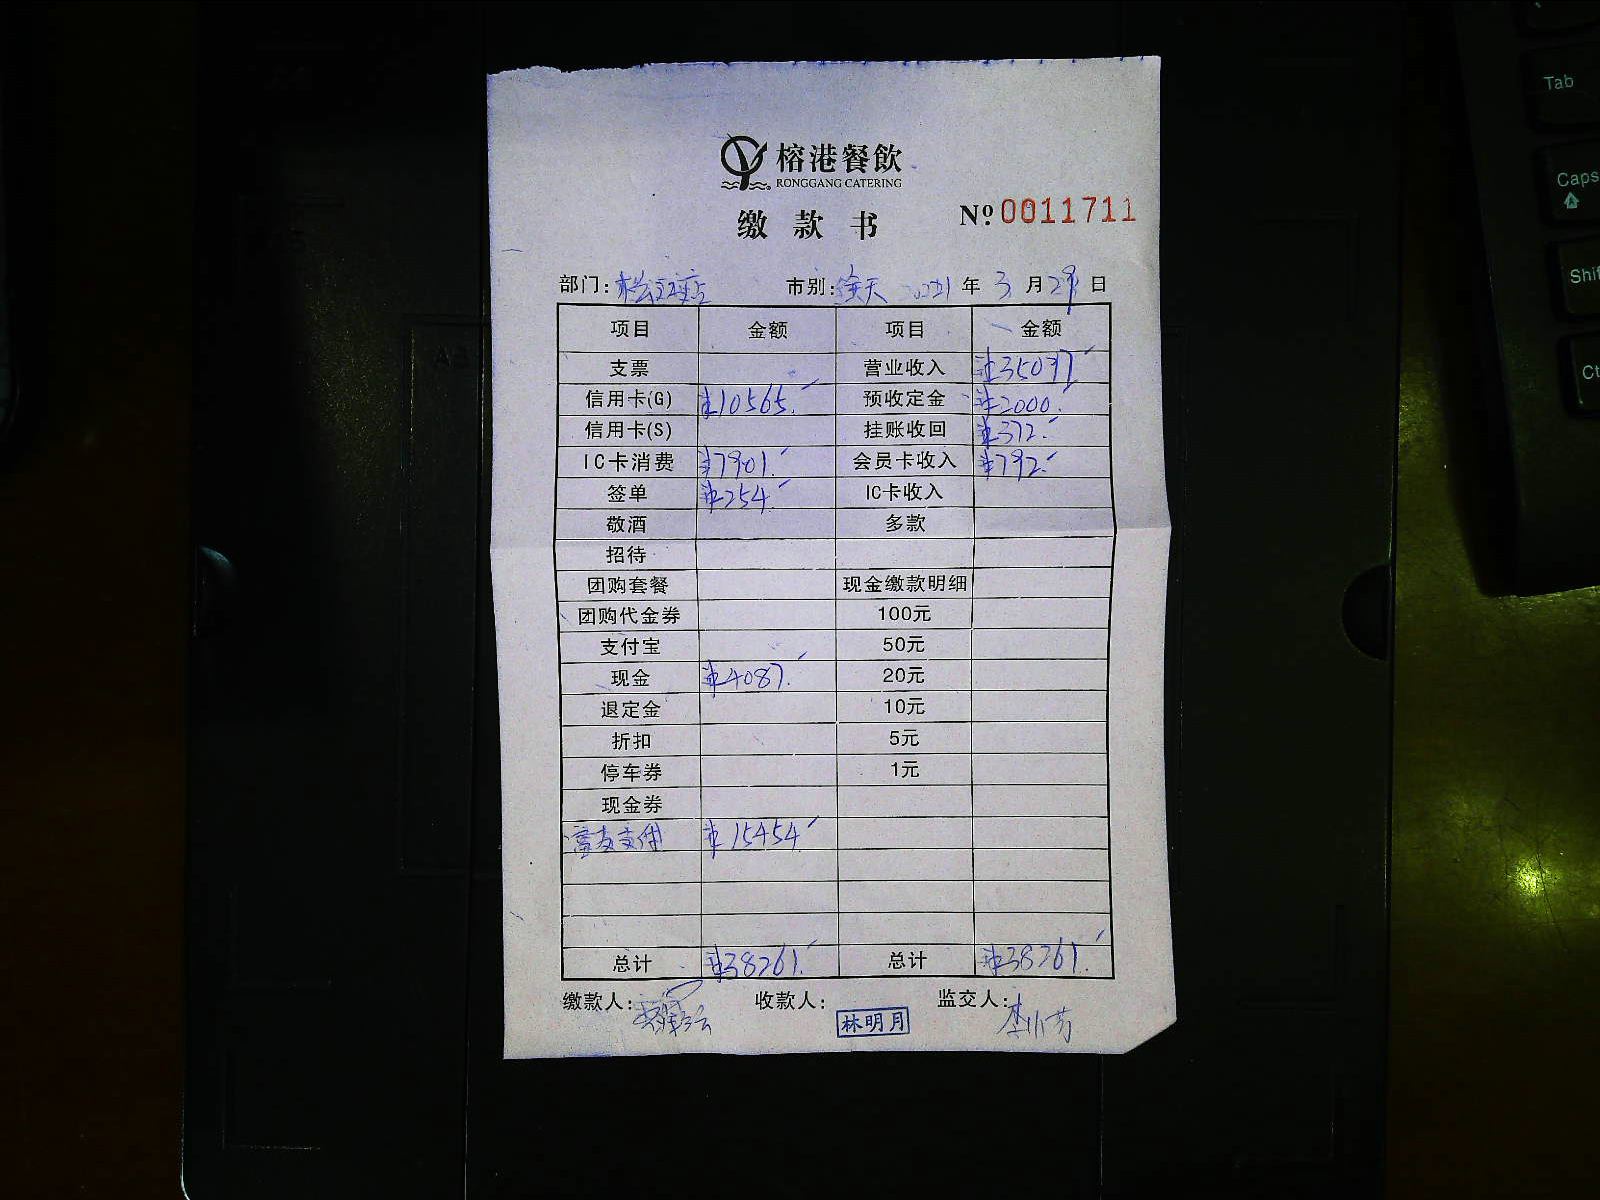 榕港餐飲
RONGGANG CATERING
缴款书
Nº 0011711
部门: 市别:全天 2021年3月29日
项目 金额 项目 金额
支票 营业收入 ¥35097
信用卡(G) ¥10565. 预收定金 ¥2000.
信用卡(S) 挂账收回 ¥372.
IC卡消费 ¥7901. 会员卡收入 ¥792.
签单 ¥254. IC卡收入
敬酒 多款
招待
团购套餐 现金缴款明细
团购代金券 100元
支付宝 50元
现金 ¥4087. 20元
退定金 10元
折扣 5元
停车券 1元
现金券
支付 ¥15454
总计 ¥38261. 总计 ¥38261.
缴款人: 收款人: 林明月 监交人: 李小芳
Tab
Caps
Shif
Ct